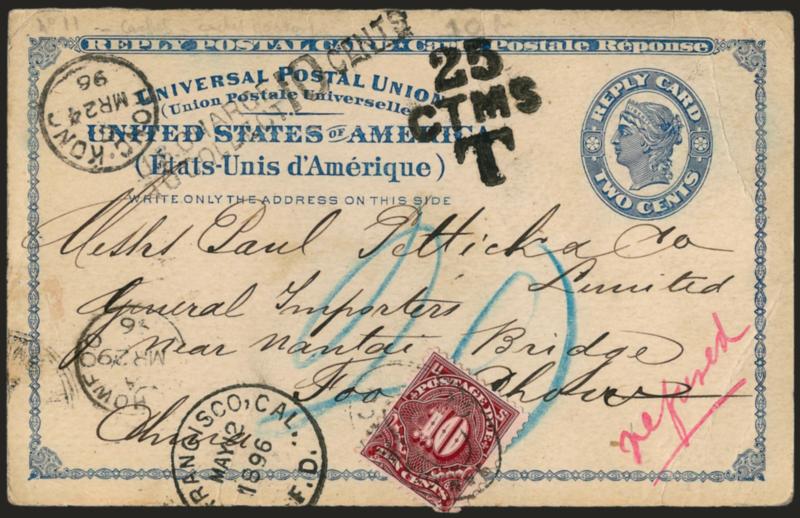 REPLY POSTAL CARD. Carte Postale Réponse
UNIVERSAL POSTAL UNION
(Union Postale Universelle)
UNITED STATES OF AMERICA
(États-Unis d'Amérique)
WRITE ONLY THE ADDRESS ON THIS SIDE
HONG-KONG
MR 24
96
10 CENTS
25
CTMS
T
REPLY CARD
TWO CENTS
Paul
Limited
General Importers
near Nantai Bridge
Foo Chow
China
20
refused
MR 29
FRANCISCO, CAL.
MAY 2
1896
F.D.
POSTAGE DUE
10
TEN CENTS